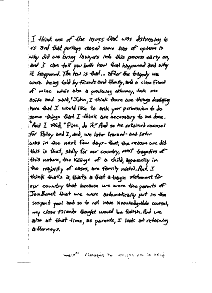 I think one of the issues that was distressing to
us and that perhaps raised some sort of question is
why did we bring lawyers into this process early on,
and I can tell you both how that happened and why
it happened. The fact is that... after the tragedy we
were being told by friends and family, and a close friend
of mine who's also a practicing attorney, took me
aside and said, "John, I think there are things happening
here that I would like to ask your permission to do
some things that I think are necessary to be done."
And I said, "Fine, do it." And so he retained counsel
for Patsy and I, and we later learned - and later
was in the next few days - that the reason we did
this is that, sadly for our country, most tragedies of
this nature, the killings of a child, apparently in
the majority of cases, are family related. And I
think that's a, that's a that a tragic statement for
our country that because we were the parents of
JonBenet that we were automatically put in the
suspect pool and so to not have knowledgeable counsel,
my close friends thought would be foolish. And we
also at that time, as parents, I look at retaining
attorneys.